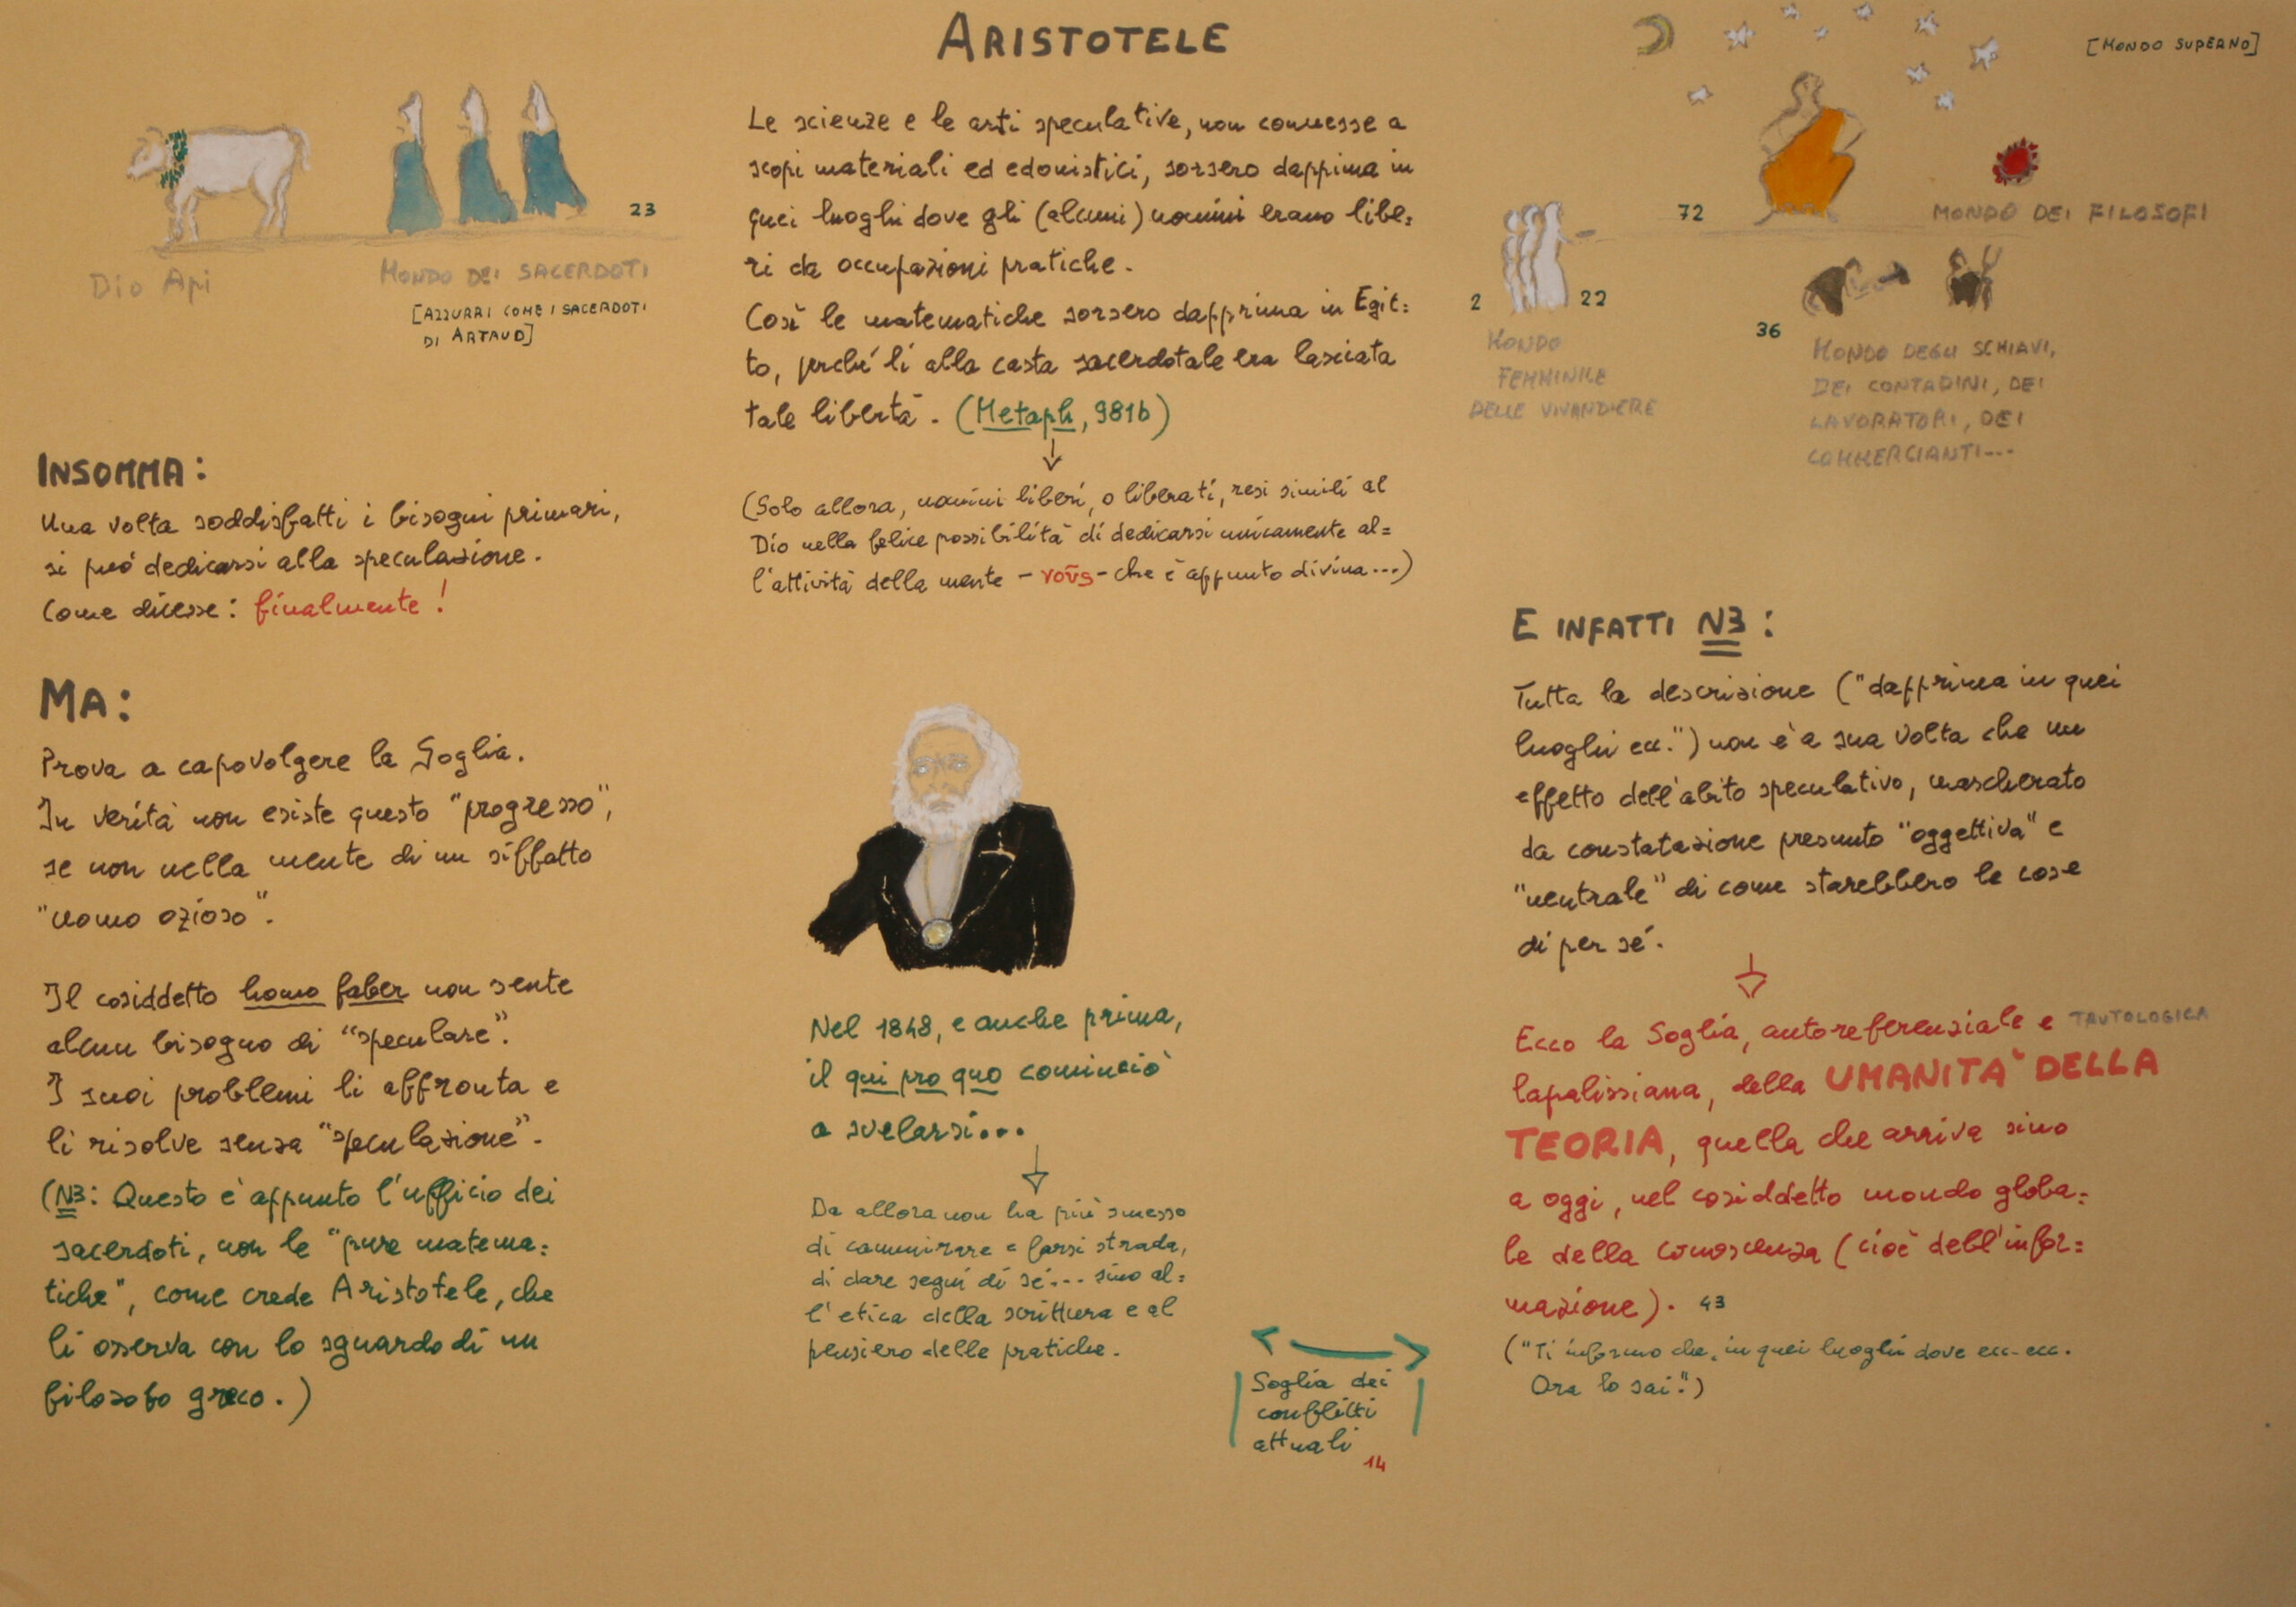 ARISTOTELE
[MONDO SUPERNO]
23
Dio Api
MONDO DEI SACERDOTI
[AZZURRI COME I SACERDOTI
DI ARTAUD]
Le scienze e le arti speculative, non connesse a
scopi materiali ed edonistici, sorsero dapprima in
quei luoghi dove gli (alcuni) uomini erano libe=
ri da occupazioni pratiche.
Così le matematiche sorsero dapprima in Egit=
to, perché lì alla casta sacerdotale era lasciata
tale libertà. (Metaph, 981b)
(Solo allora, uomini liberi, o liberati, resi simili al
Dio nella felice possibilità di dedicarsi unicamente al=
l'attività della mente - νοῦς - che è appunto divina...)
72
MONDO DEI FILOSOFI
2
22
MONDO
FEMMINILE
DELLE VIVANDIERE
36
MONDO DEGLI SCHIAVI,
DEI CONTADINI, DEI
LAVORATORI, DEI
COMMERCIANTI...
INSOMMA:
Una volta soddisfatti i bisogni primari,
si può dedicarsi alla speculazione.
Come dicesse: finalmente!
MA:
Prova a capovolgere la Soglia.
In verità non esiste questo "progresso",
se non nella mente di un siffatto
"uomo ozioso".
Il cosiddetto homo faber non sente
alcun bisogno di "speculare".
I suoi problemi li affronta e
li risolve senza "speculazione".
(NB: Questo è appunto l'ufficio dei
sacerdoti, non le "pure matema=
tiche", come crede Aristotele, che
li osserva con lo sguardo di un
filosofo greco.)
Nel 1848, e anche prima,
il qui pro quo cominciò
a svelarsi...
Da allora non ha più smesso
di camminare e farsi strada,
di dare segni di sé... sino al=
l'etica della scrittura e al
pensiero delle pratiche.
Soglia dei
conflitti
attuali
14
E INFATTI NB:
Tutta la descrizione ("dapprima in quei
luoghi ecc.") non è a sua volta che un
effetto dell'abito speculativo, mascherato
da constatazione presunto "oggettiva" e
"neutrale" di come starebbero le cose
di per sé.
Ecco la Soglia, autoreferenziale e TAUTOLOGICA
lapalissiana, della UMANITÀ DELLA
TEORIA, quella che arriva sino
a oggi, nel cosiddetto mondo globa=
le della conoscenza (cioè dell'infor=
mazione). 43
("Ti informo che, in quei luoghi dove ecc. ecc.
Ora lo sai.")